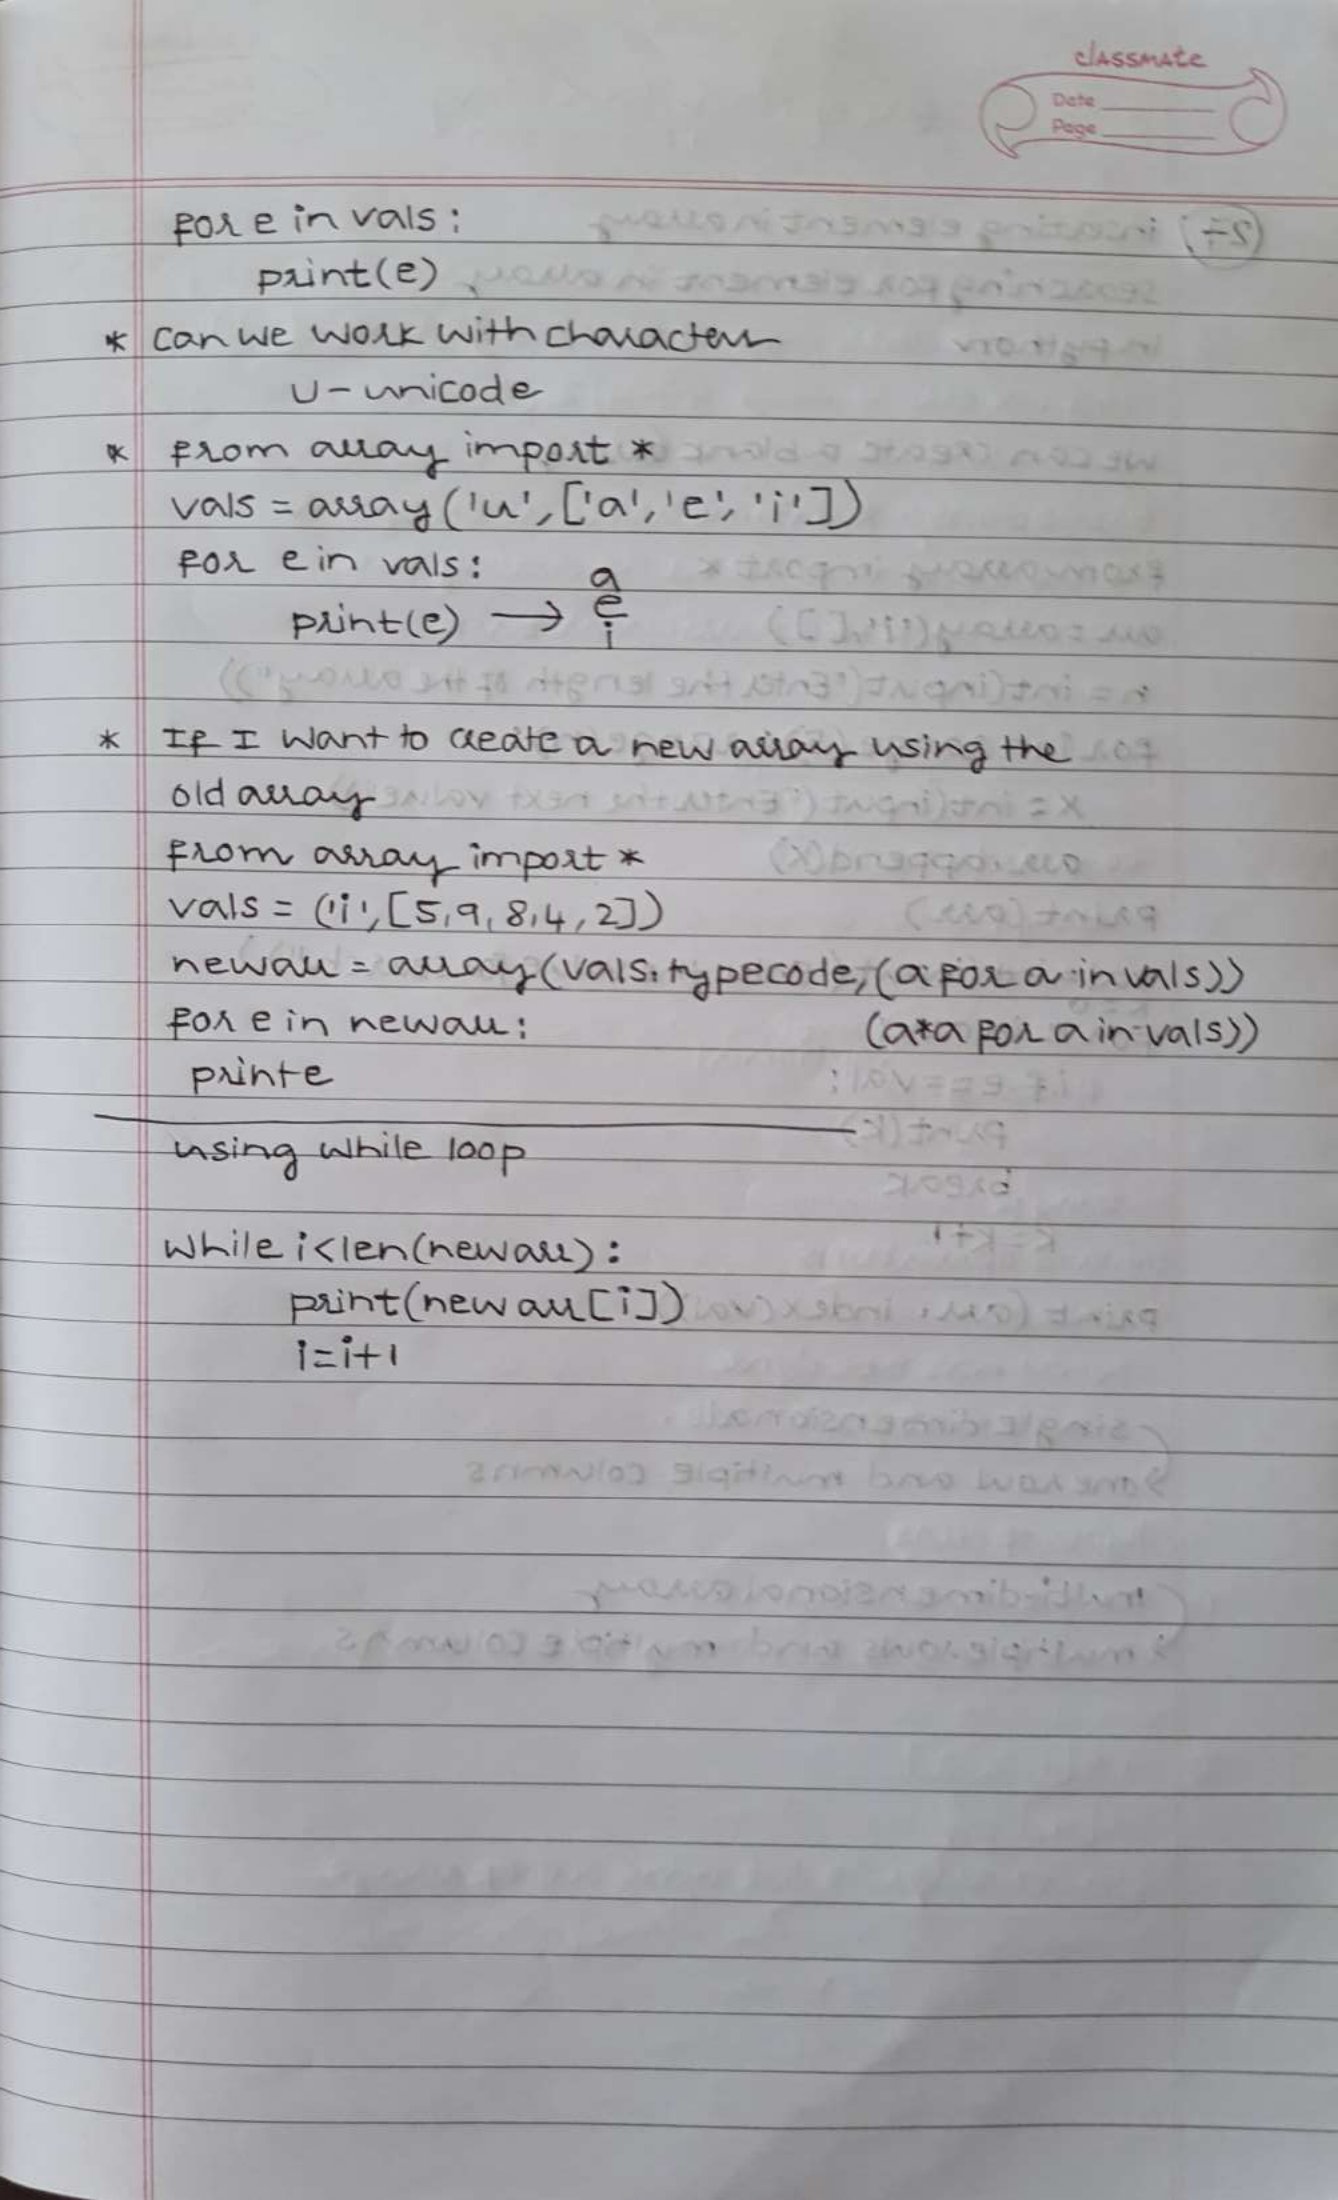 classmate
Date
Page
for e in vals:
print(e)
* can we work with characters
u - unicode
* from array import *
vals = array('u',['a','e','i'])
for e in vals:
print(e) → a
e
i
* If I want to create a new array using the
old array
from array import *
vals = ('i',[5,9,8,4,2])
newarr = array(vals.typecode,(a for a in vals))
for e in newarr: (a*a for a in vals))
print e
using while loop
while i<len(newarr):
print(newarr[i])
i=i+1